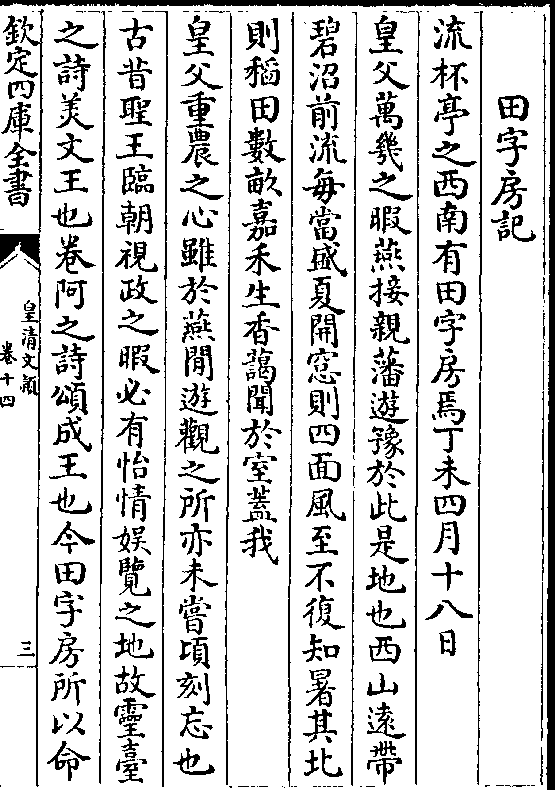 田字房記
流杯亭之西南有田字房焉丁未四月十八日
皇父萬幾之暇燕接親藩遊豫於此是地也西山遠帶
碧沼前流每當盛夏開窓則四面風至不復知暑其北
則稻田數畝嘉禾生香藹聞於室蓋我
皇父重農之心雖於燕閒遊觀之所亦未嘗頃刻忘也
古昔聖王臨朝視政之暇必有怡情娱覽之地故靈臺
之詩美文王也卷阿之詩頌成王也今田字房所以命
欽定四庫全書
皇清文穎
卷十四
三